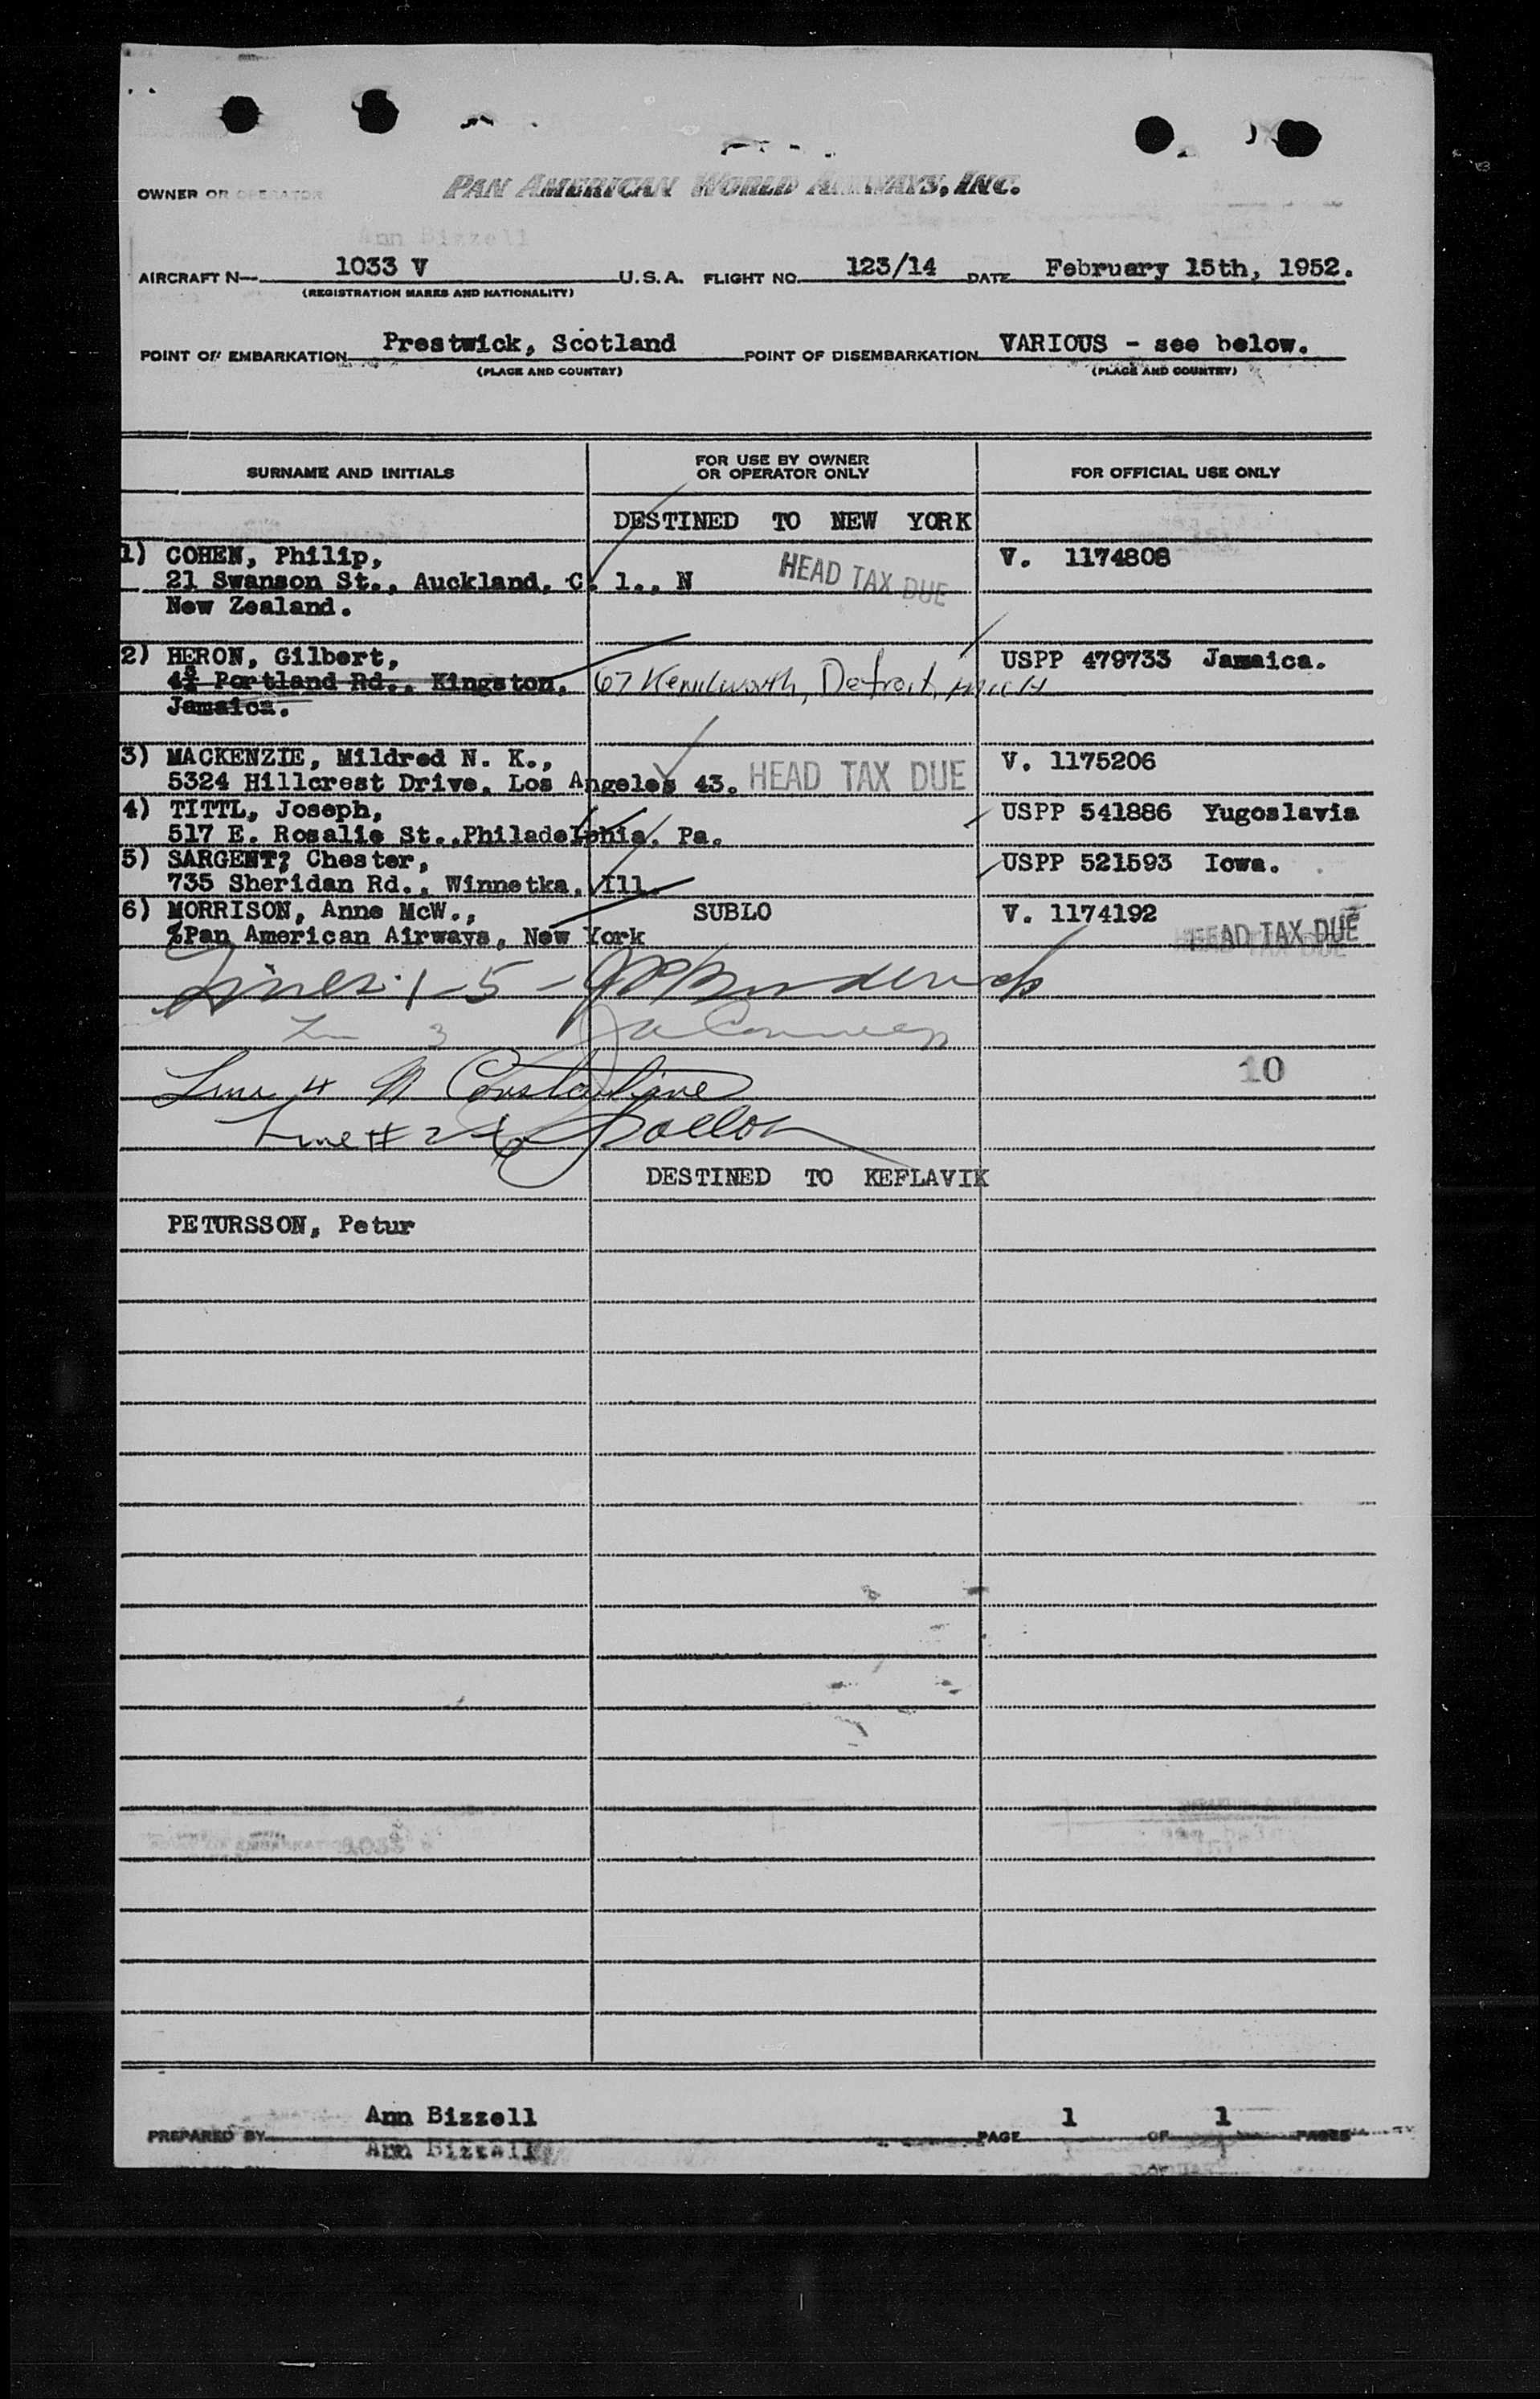 OWNER OR OPERATOR PAN AMERICAN WORLD AIRWAYS, INC.
Ann Bizzell
AIRCRAFT N— 1033 V U.S.A. FLIGHT NO. 123/14 DATE February 15th, 1952.
(REGISTRATION MARKS AND NATIONALITY)
POINT OF EMBARKATION Prestwick, Scotland POINT OF DISEMBARKATION VARIOUS - see below.
(PLACE AND COUNTRY) (PLACE AND COUNTRY)
SURNAME AND INITIALS FOR USE BY OWNER OR OPERATOR ONLY FOR OFFICIAL USE ONLY
DESTINED TO NEW YORK
1) COHEN, Philip, HEAD TAX DUE V. 1174808
21 Swanson St., Auckland, C. 1., N
New Zealand.
2) HERON, Gilbert, USPP 479733 Jamaica.
Portland Rd., Kingston, 67 Kenilworth, Detroit, Mich
Jamaica.
3) MACKENZIE, Mildred N. K., V. 1175206
5324 Hillcrest Drive, Los Angeles 43. HEAD TAX DUE
4) TITTL, Joseph, USPP 541886 Yugoslavia
517 E. Rosalie St.,Philadelphia, Pa.
5) SARGENT, Chester, USPP 521593 Iowa.
735 Sheridan Rd., Winnetka, Ill.
6) MORRISON, Anne McW., SUBLO V. 1174192
%Pan American Airways, New York HEAD TAX DUE
Lines 1-5 -
3
10
Line 4 N Constantine
Line # 2
DESTINED TO KEFLAVIK
PETURSSON, Petur
1033
Ann Bizzell
PREPARED BY PAGE 1 OF 1 PAGES
Ann Bizzell